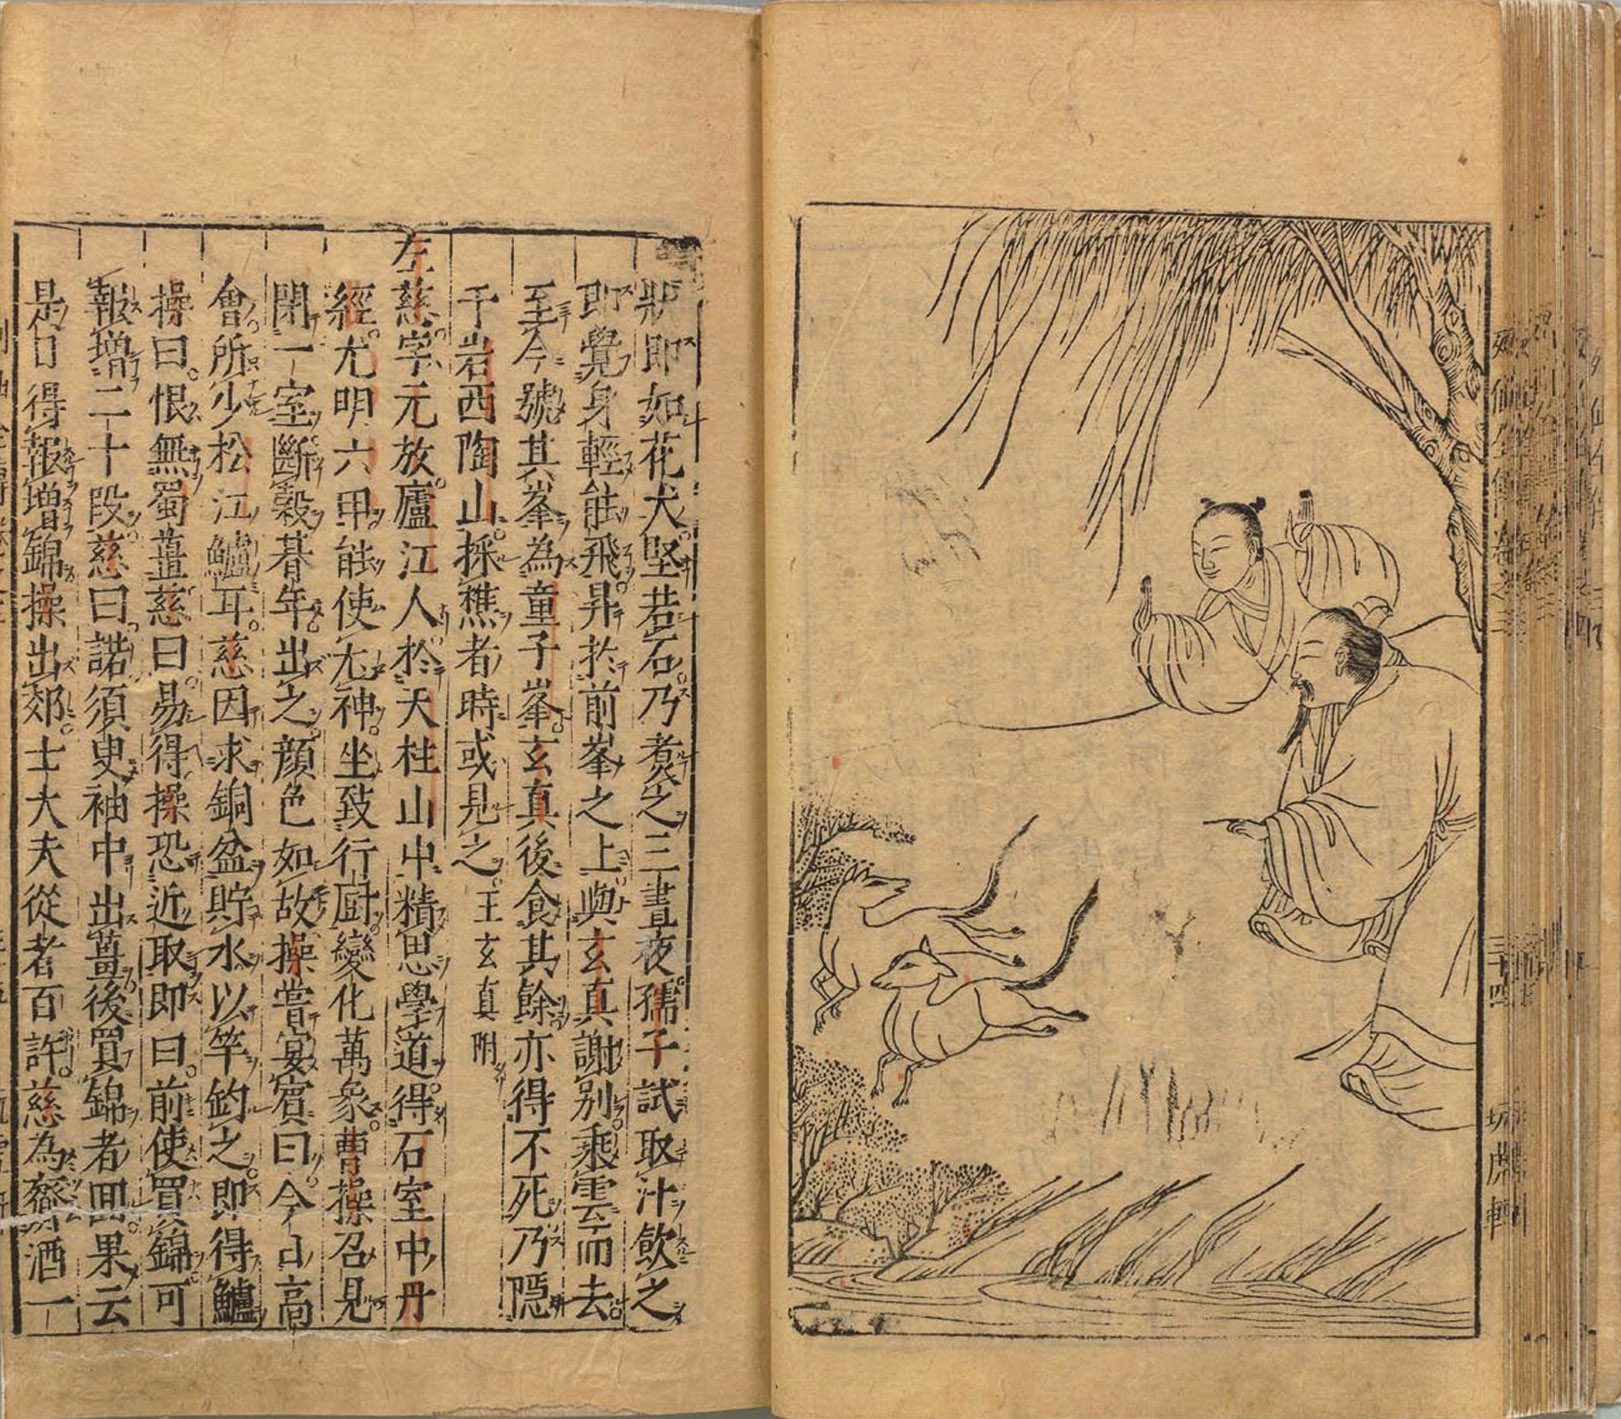 狀即如花犬堅若石乃煮之三晝夜孺子試取汁飲之
即覺身輕能飛昇於前峯之上與玄真謝別乘雲而去
至今號其峯為童子峯玄真後食其餘亦得不死乃隱
于岩西陶山採樵者時或見之王玄真附
左慈字元放廬江人於天柱山中精思學道得石室中丹
經尤明六甲能使尢神坐致行廚變化萬象曹操召見
閉一室斷穀朞年出之顏色如故操嘗宴賓曰今日高
會所少松江鱸耳慈因求銅盆貯水以竿釣之即得鱸
操曰恨無蜀薑慈曰易得操恐近取即曰前使買錦可
報增二十段慈曰諾須臾袖中出薑後買錦者回果云
是日得報增錦操出郊士大夫從者百許慈為齎酒一